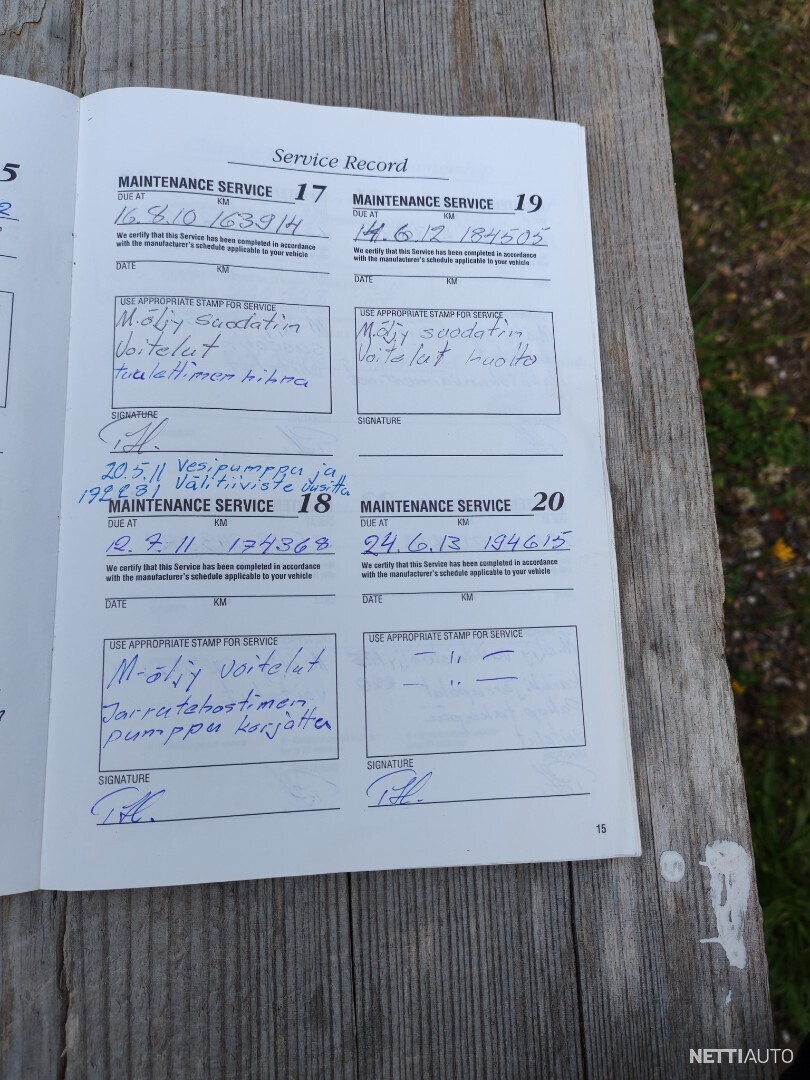 5
2
Service Record
MAINTENANCE SERVICE 17
DUE AT KM
16.8.10 163914
We certify that this Service has been completed in accordance
with the manufacturer's schedule applicable to your vehicle
DATE KM
USE APPROPRIATE STAMP FOR SERVICE
M-öljy suodatin
Voitelut
tuulettimen hihna
SIGNATURE
20.5.11 Vesipumppu ja
192231 Välitiiviste uusittu
MAINTENANCE SERVICE 18
DUE AT KM
12.7.11 174368
We certify that this Service has been completed in accordance
with the manufacturer's schedule applicable to your vehicle
DATE KM
USE APPROPRIATE STAMP FOR SERVICE
M-öljy voitelut
Jarrutehostimen
pumppu korjattu
SIGNATURE
MAINTENANCE SERVICE 19
DUE AT KM
14.6.12 184505
We certify that this Service has been completed in accordance
with the manufacturer's schedule applicable to your vehicle
DATE KM
USE APPROPRIATE STAMP FOR SERVICE
M.öljy suodatin
Voitelut huolto
SIGNATURE
MAINTENANCE SERVICE 20
DUE AT KM
24.6.13 194615
We certify that this Service has been completed in accordance
with the manufacturer's schedule applicable to your vehicle
DATE KM
USE APPROPRIATE STAMP FOR SERVICE
— 〃 —
— 〃 —
SIGNATURE
15
NETTIAUTO